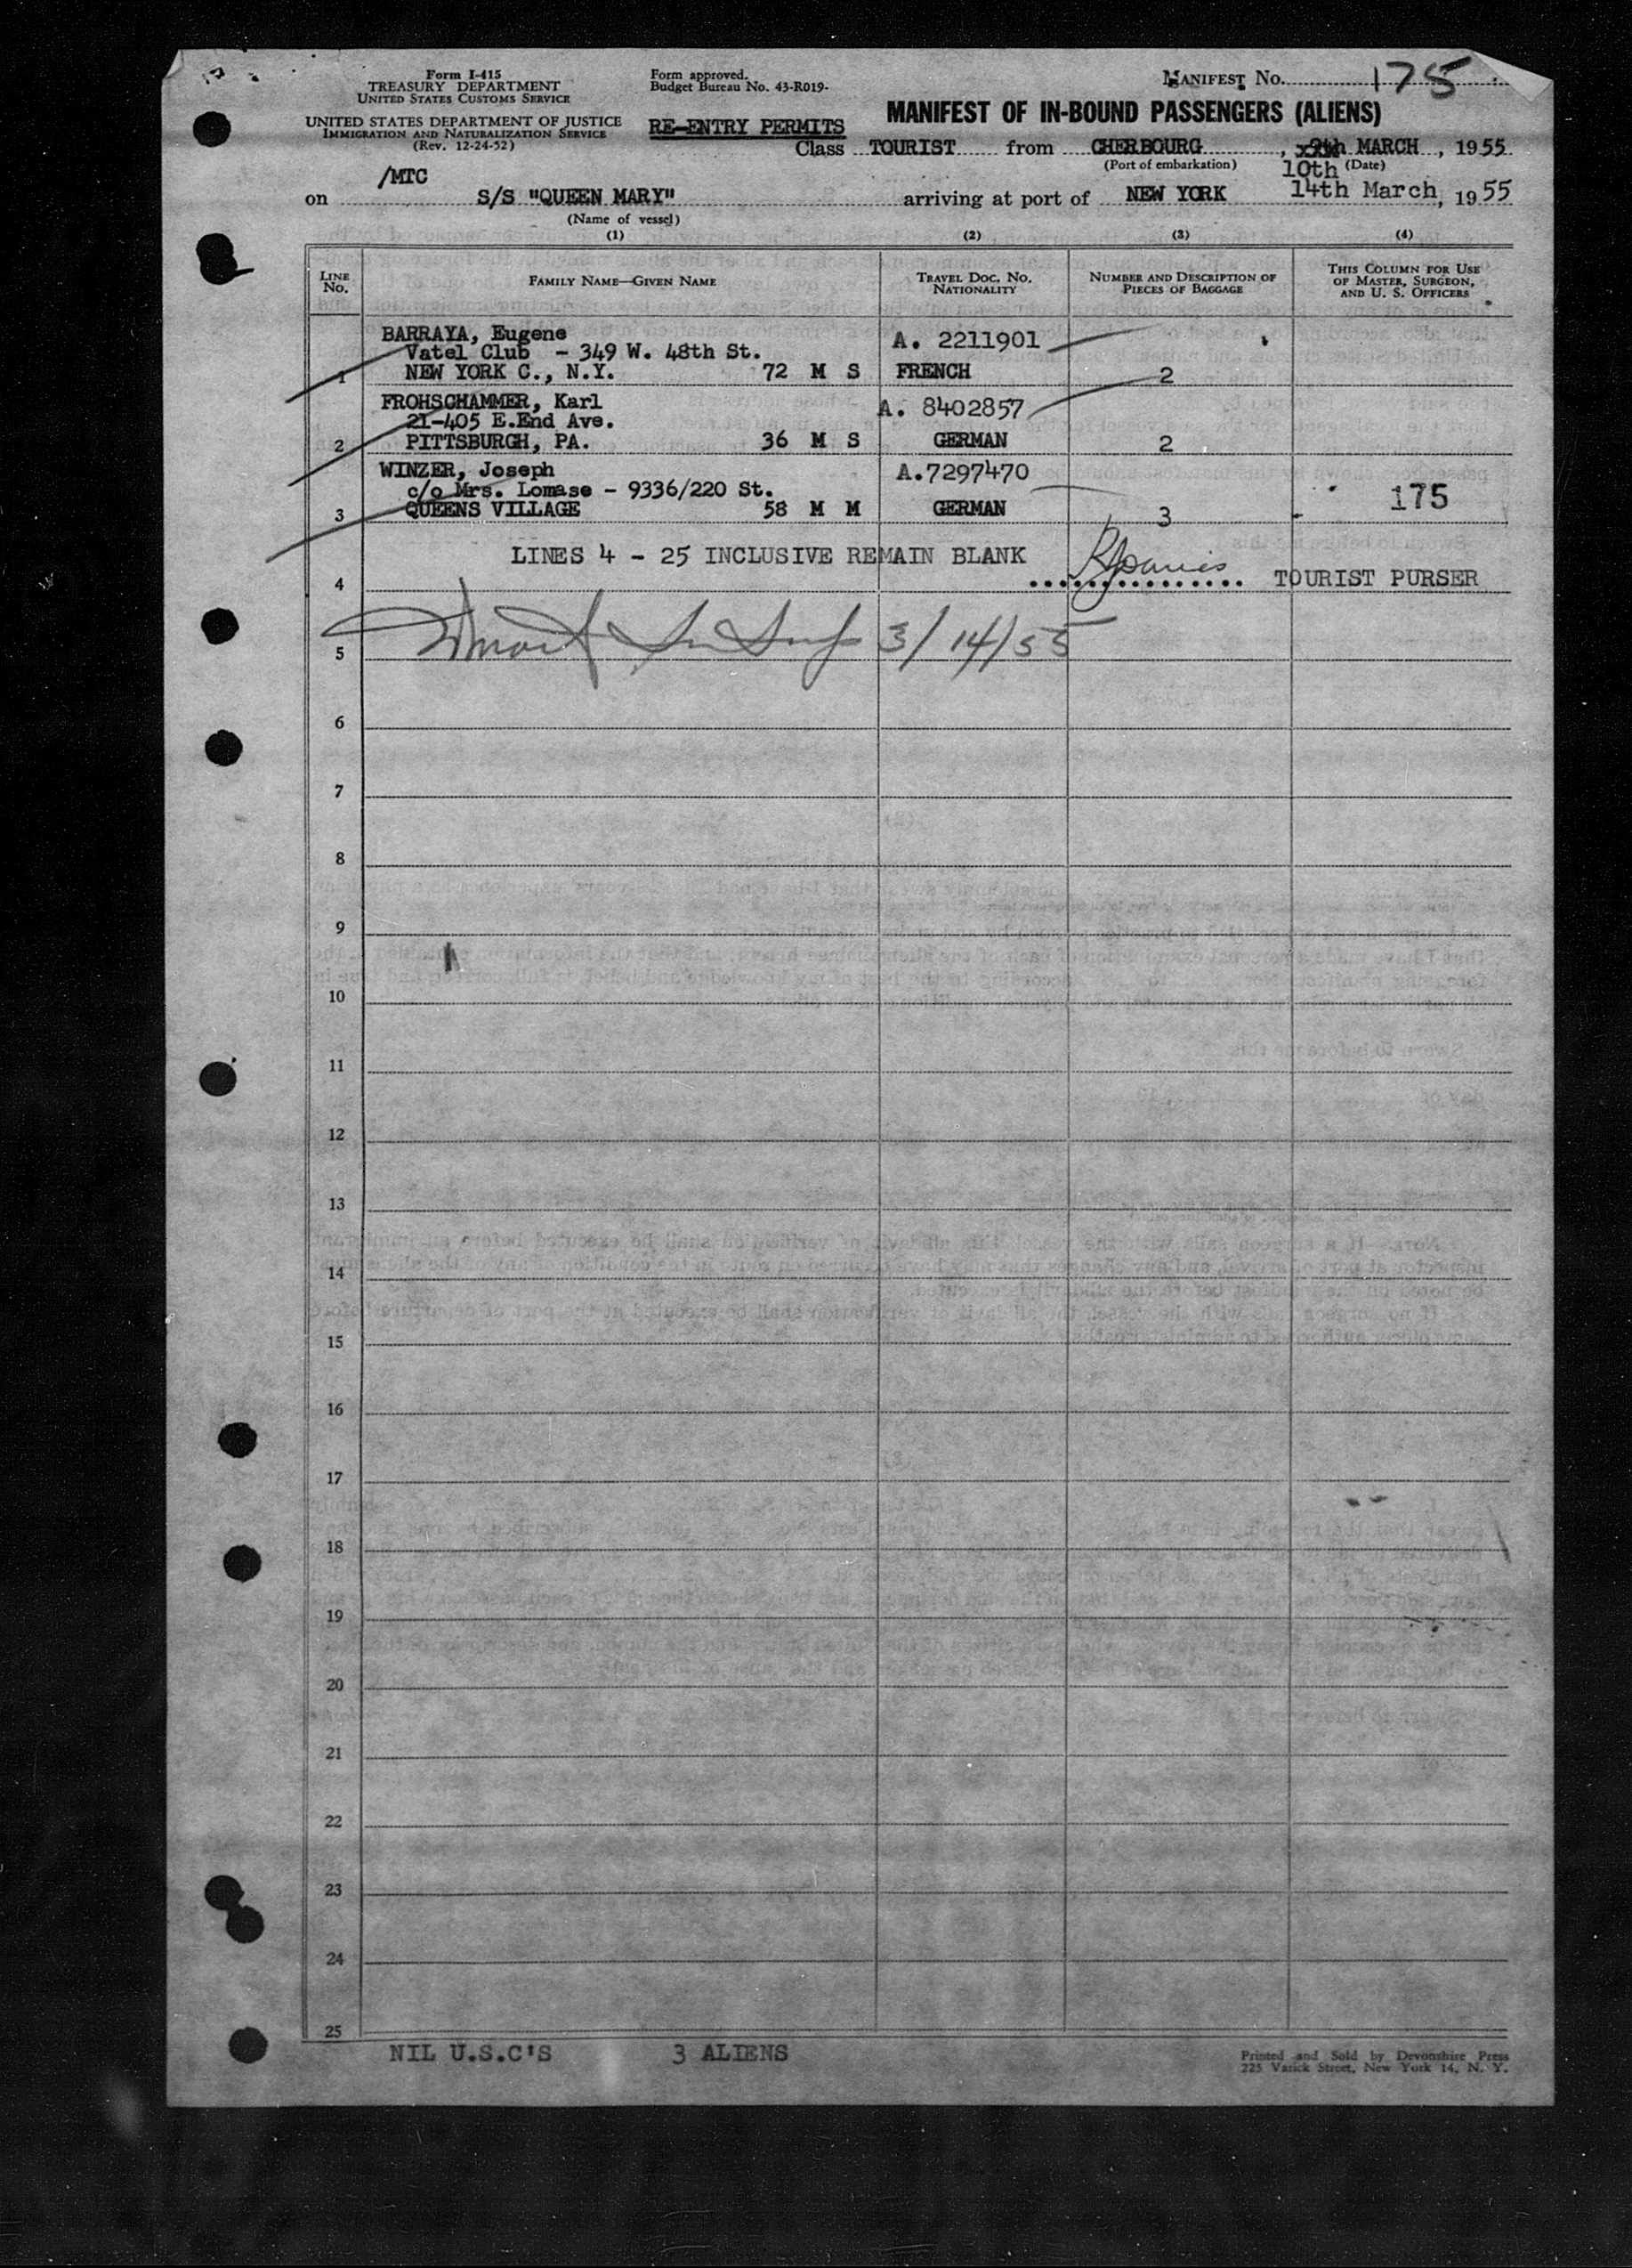 Form I-415
TREASURY DEPARTMENT
UNITED STATES CUSTOMS SERVICE
UNITED STATES DEPARTMENT OF JUSTICE
IMMIGRATION AND NATURALIZATION SERVICE
(Rev. 12-24-52)
Form approved.
Budget Bureau No. 43-R019-
RE-ENTRY PERMITS
MANIFEST NO. 175
MANIFEST OF IN-BOUND PASSENGERS (ALIENS)
Class TOURIST from CHERBOURG, 9th MARCH, 1955
(Port of embarkation) 10th (Date)
/MTC
on S/S "QUEEN MARY" arriving at port of NEW YORK 14th March, 1955
(Name of vessel)
(1) (2) (3) (4)
LINE NO. FAMILY NAME—GIVEN NAME TRAVEL DOC. NO. NATIONALITY NUMBER AND DESCRIPTION OF PIECES OF BAGGAGE THIS COLUMN FOR USE OF MASTER, SURGEON, AND U. S. OFFICERS
BARRAYA, Eugene A. 2211901
Vatel Club - 349 W. 48th St.
1 NEW YORK C., N.Y. 72 M S FRENCH 2
FROHSCHAMMER, Karl A. 8402857
21-405 E.End Ave.
2 PITTSBURGH, PA. 36 M S GERMAN 2
WINZER, Joseph A.7297470
c/o Mrs. Lomase - 9336/220 St. 175
3 QUEENS VILLAGE 58 M M GERMAN 3
LINES 4 - 25 INCLUSIVE REMAIN BLANK
4 TOURIST PURSER
5 3/14/55
6
7
8
9
10
11
12
13
14
15
16
17
18
19
20
21
22
23
24
25
NIL U.S.C'S 3 ALIENS
Printed and Sold by Devonshire Press
225 Varick Street, New York 14, N. Y.